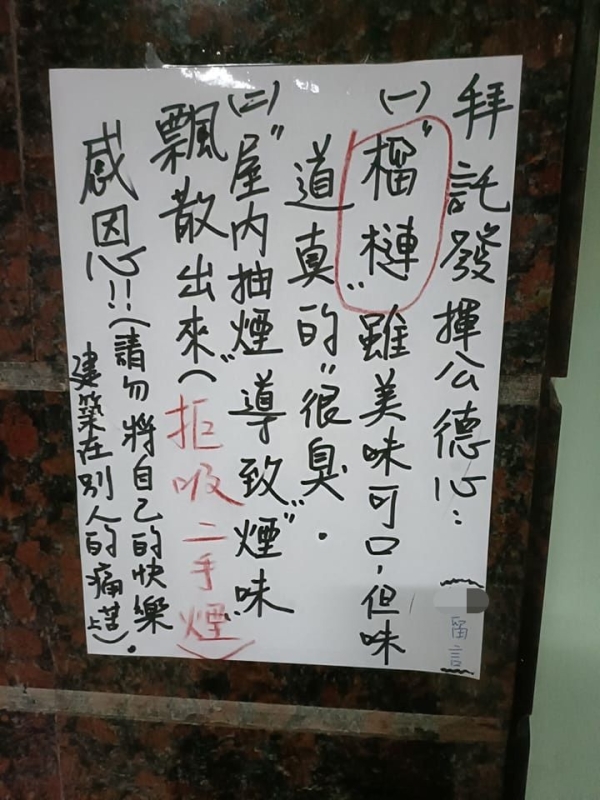 拜託發揮公德心:
(一)"榴槤"雖美味可口,但味
道真的"很臭".
(二)"屋內抽煙"導致"煙"味
飄散出來(拒吸二手煙)
感因心!!(請勿將自己的快樂
建築在別人的痛苦上).
留言